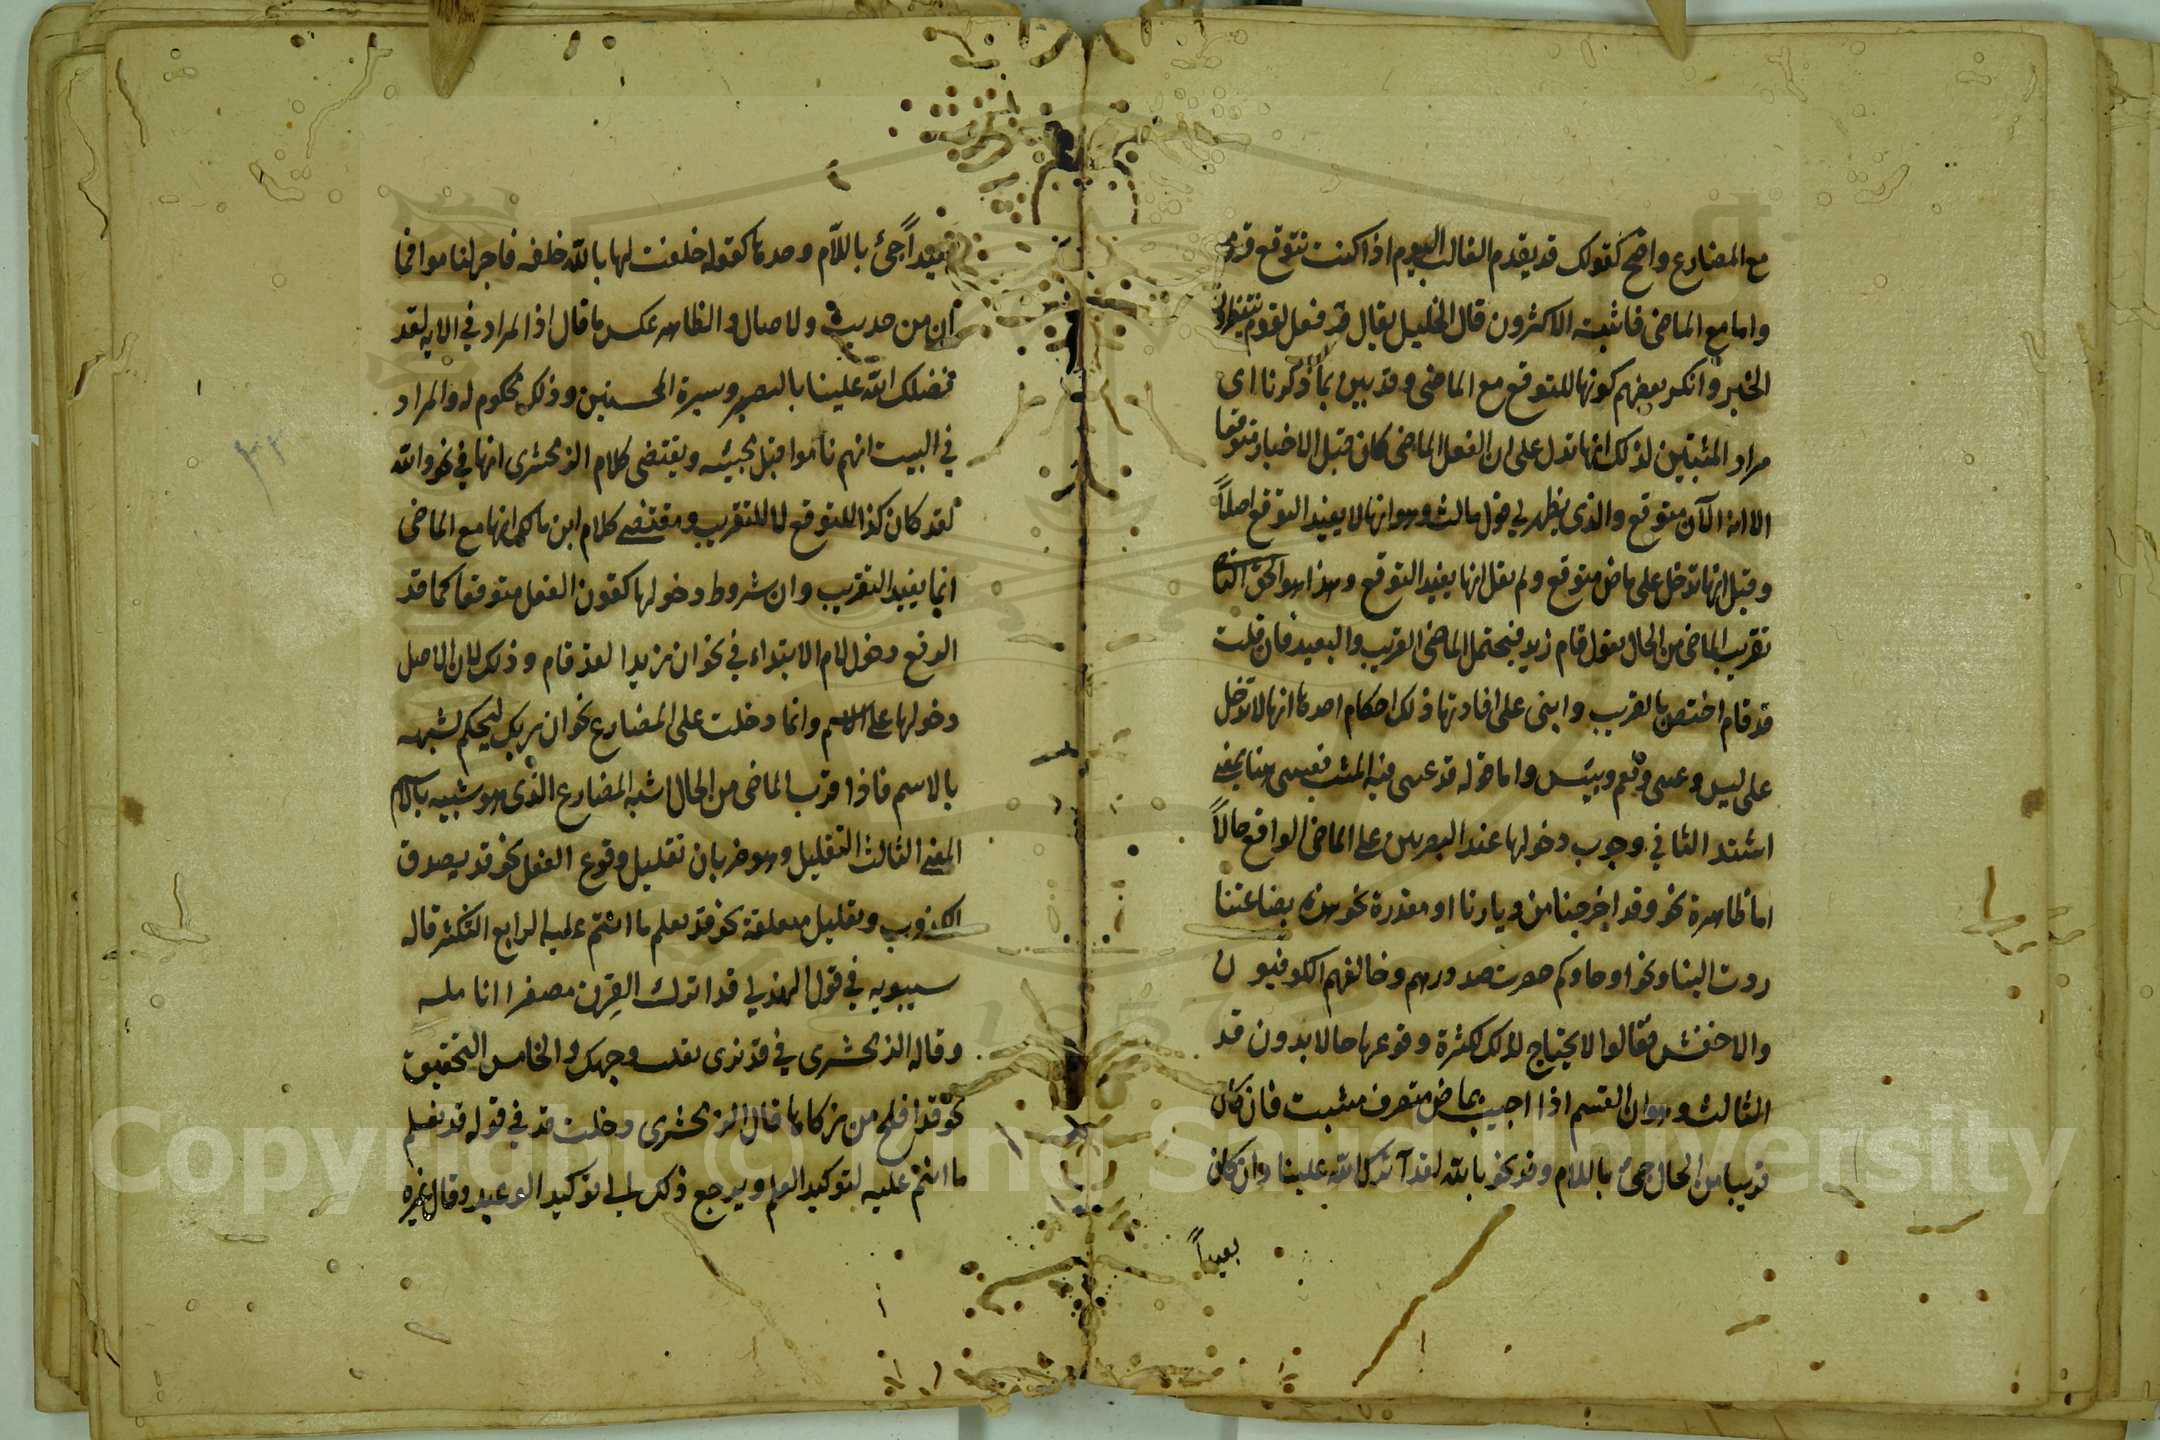 مع المضارع واضح كقولك قد يقدم الغائب اليوم اذا كنت تتوقع قدومه
واما مع الماضى فاثبته الاكثرون قال الخليل يقال قد فعل لقوم ينتظرون
الخبر وانكر بعضهم كونها للتوقع مع الماضى وقد بين بما ذكرنا اى
مراد المثبتين لذلك انها تدل على ان الفعل الماضى كان قبل الاخبار متوقعا
الا انه الآن متوقع والذى يظهر لى قول ثالث وهو انها لا يفيد التوقع اصلاً
وقيل انها تدخل على ماض متوقع ولم يقل انها يفيد التوقع وهذا هو الحق الثانى
تقريب الماضى من الحال يقول قام زيد فيحتمل الماضى القريب والبعيد فان قلت
قد قام اختص بالقريب وابنى على افادتها ذلك احكام احدها انها لا تدخل
على ليس وعسى ونعم وبيس واما قوله قد عسى فيه المشيب فعسى هنا بمعنى
اشتد الثانى وجوب دخولها عند البصريين على الماضى الواقع حالاً
اما ظاهرة نحو وقد اخرجنا من ديارنا او مقدرة نحو هذه بضاعتنا
ردت الينا ونحو او جاوكم حصرت صدورهم وخالفهم الكوفيون
والاخفش فقالوا لا يحتاج لذلك لكثرة وقوعها حالا بدون قد
الثالث وهو ان القسم اذا اجيب بماض متصرف مثبت فان كان
قريبا من الحال جئ باللام وقد نحو بالله لقد آثرك الله علينا وان كان
بعيداً
بعيداً جئ باللام وحدها كقوله حلفت لها بالله حلفه فاجر لناموا فما
ان من حديث ولا صال والظاهر عكس ما قال اذ المراد فى الايه لقد
فضلك الله علينا بالصبر وسيرة المحسنين وذلك محكوم له والمراد
فى البيت انهم ناموا قبل مجيئه ويقتضى كلام الزمخشرى انها فى نحو والله
لقد كان كذا للتوقع لا للتقريب ومقتضى كلام ابن مالك انها مع الماضى
انما يفيد التقريب وان شروط دخولها كقون الفعل متوقعا كما قد
الرفع دخول لام الابتداء فى نحو ان زيدا لقد قام وذلك لان الاصل
دخولها على الاسم وانما دخلت على المضارع نحو ان ربك ليحكم لشبهه
بالاسم فاذا قرب الماضى من الحال اشبه المضارع الذى هو شبيه بالاسم
المعنى الثالث التقليل وهو ضربان تقليل وقوع الفعل نحو قد يصدق
الكذوب وتقليل متعلقة نحو قد يعلم ما انتم عليه الرابع التكثير قاله
سيبويه فى قول الهذلى قد اترك القرن مصفرا انامله
وقاله الزمخشرى فى قد نرى تقلب وجهك والخامس التحقيق
نحو قد افلح من زكاها قال الزمخشرى دخلت قد فى قوله قد يعلم
ما انتم عليه لتوكيد العلم ويرجع ذلك الى توكيد الوعيد وقال غيره
Copyright © King Saud University
1957